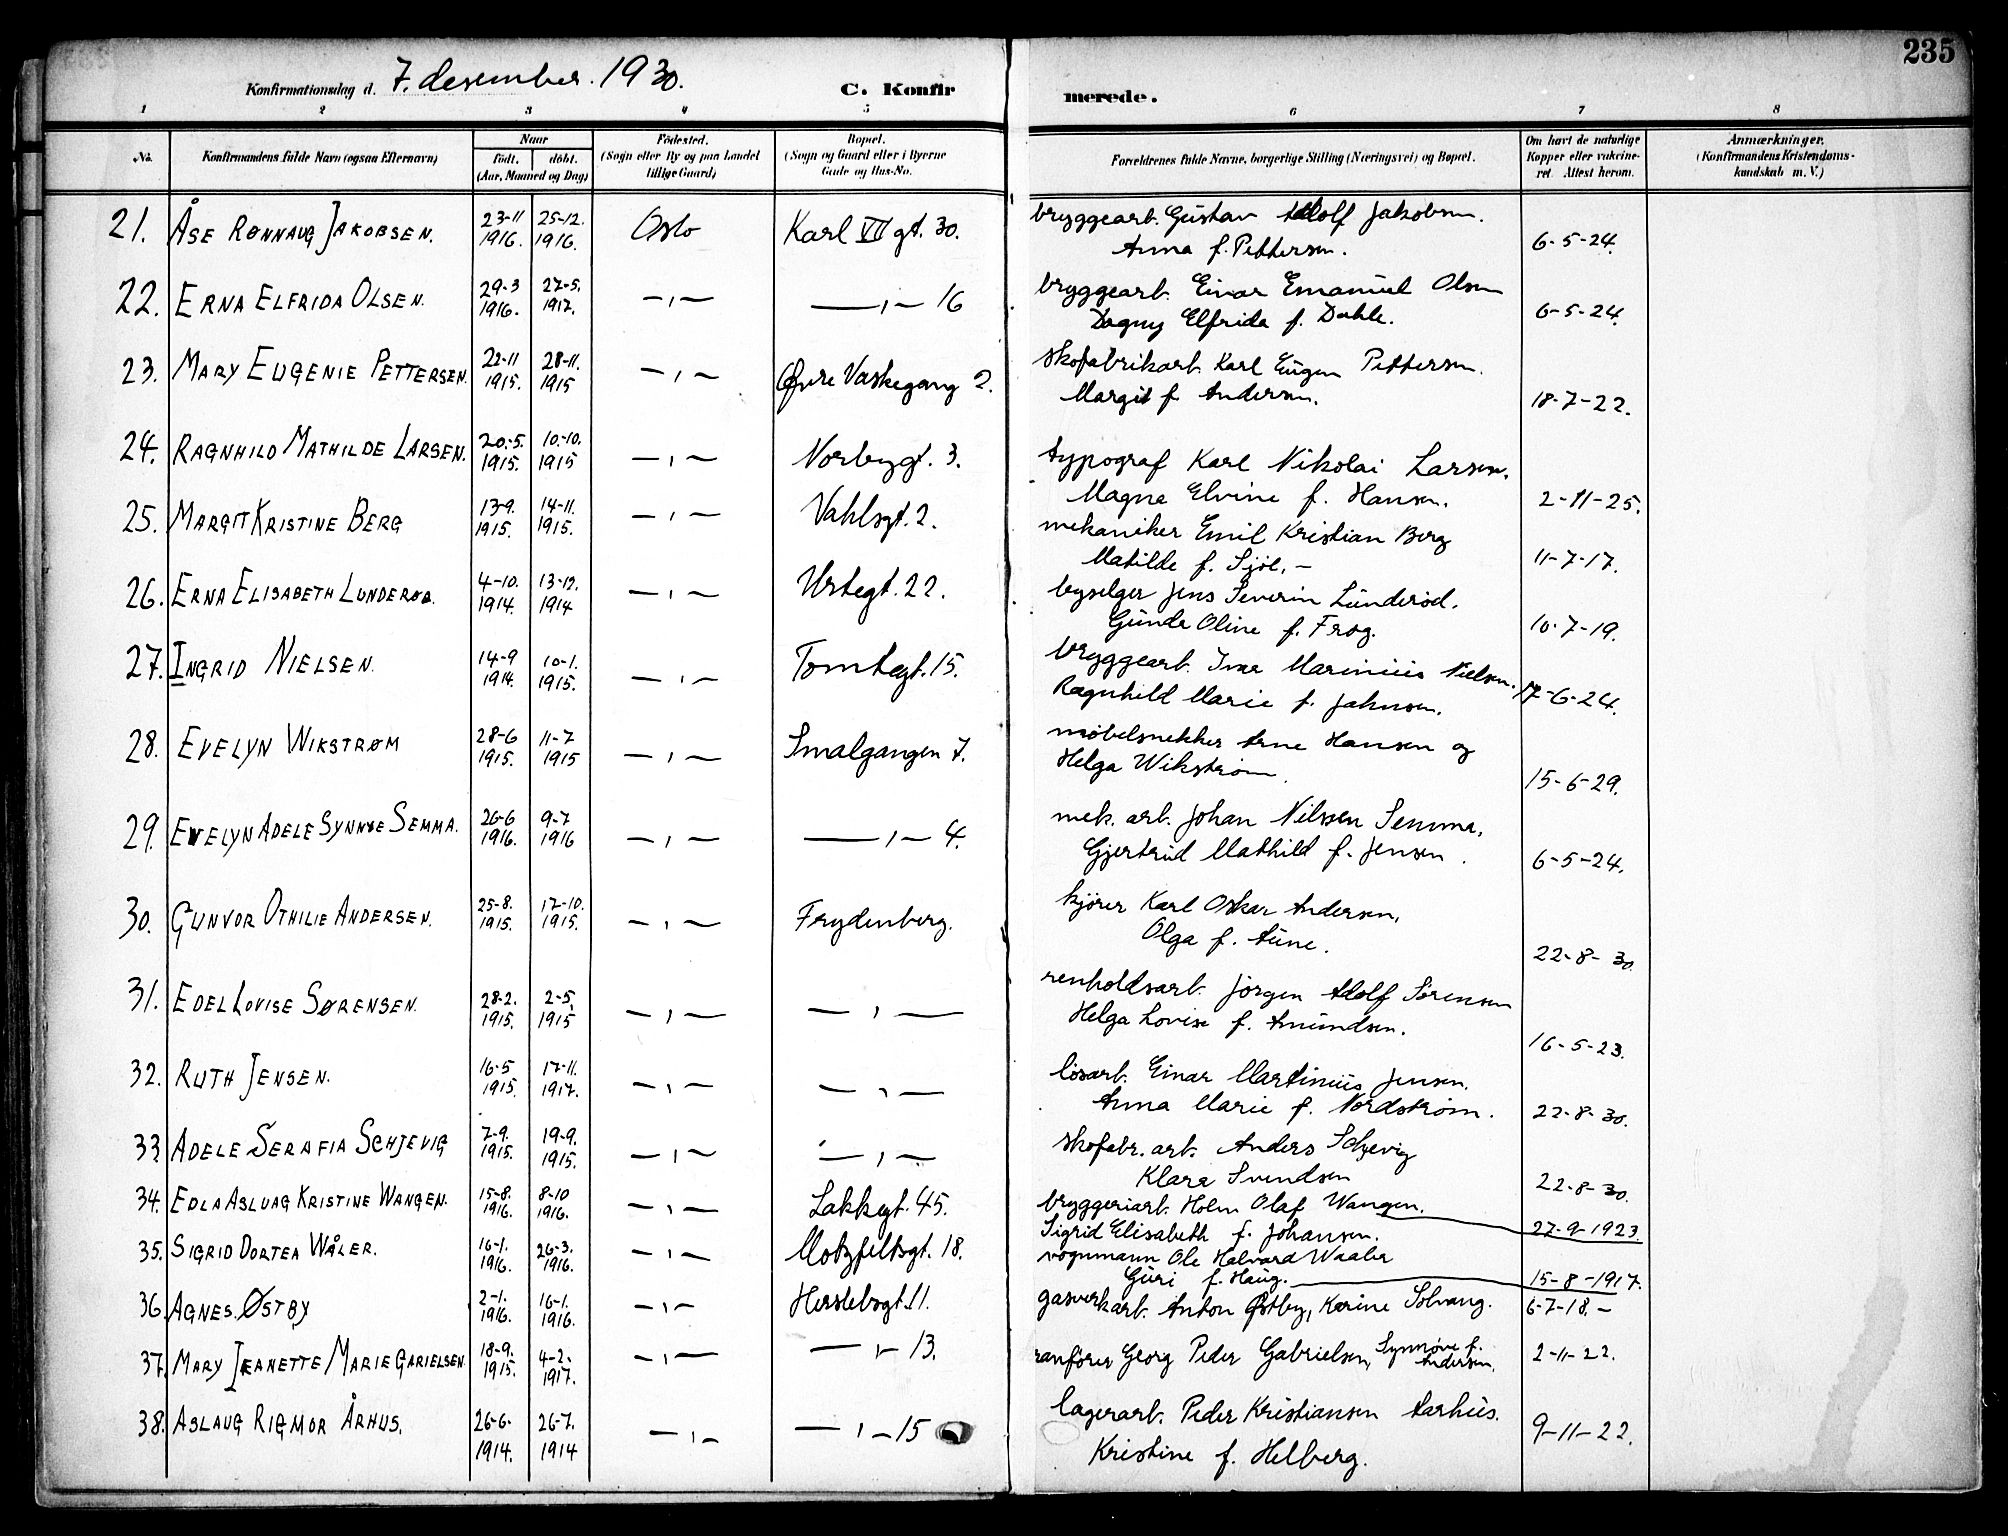 235
Konfirmationsdag d. 7. desember. 1930.
C. Konfirmerede.
1 2 3 4 5 6 7 8
No.
Konfirmandens fulde Navn (ogsaa Efternavn)
Naar
födt. döbt.
(Aar, Maaned og Dag)
Födested.
(Sogn eller By og paa Landet
tillige Gaard)
Bopæl.
(Sogn og Gaard eller i Byerne
Gade og Hus-No.
Forældrenes fulde Navne, borgerlige Stilling (Næringsvei) og Bopæl.
Om havt de naturlige
Kopper eller vakcine-
ret. Attest herom.
Anmærkninger.
(Konfirmandens Kristendoms-
kundskab m. V.)
21. ÅSE RØNNAUG JAKOBSEN. 23-11 1916. 25-12. 1916. Oslo Karl XII gt. 30. bryggearb. Gustav Adolf Jakobsen.
Anna f. Pettersen. 6-5-24.
22. ERNA ELFRIDA OLSEN. 29-3 1916. 27-5. 1917. — „ — — „ — 16 bryggearb. Einar Emanuel Olsen
Dagny Elfrida f. Dahle. 6-5-24.
23. MARY EUGENIE PETTERSEN. 22-11 1915. 28-11. 1915 — „ — Øvre Vaskegang 2. skofabrikarb. Karl Eugen Pettersen.
Margit f. Andersen. 18-7-22.
24. RAGNHILD MATHILDE LARSEN. 20.-5. 1915. 10.-10. 1915 — „ — Norbygt. 3. typograf Karl Nikolai Larsen.
Magna Elvine f. Hansen. 2-11-25.
25. MARGIT KRISTINE BERG 13-9. 1915. 14-11. 1915. — „ — Vahlsgt. 2. mekaniker Emil Kristian Berg
Matilde f. Sjöl. – 11-7-17.
26. ERNA ELISABETH LUNDERØD. 4-10. 1914. 13-12. 1914 — „ — Urtegt. 22. byselger Jens Severin Lunderöd.
Gunda Oline f. Frog. 10-7-19.
27. INGRID NIELSEN. 14-9 1914. 10-1. 1915. — „ — Tomtegt. 15. bryggearb. Ivar Marinius Nielsen.
Ragnhild Marie f. Jahnsen. 17-6-24.
28. EVELYN WIKSTRØM 28-6 1915. 11-7 1915 — „ — Smalgangen 7. møbelsnekker Arne Hansen og
Helga Wikstrøm. 15-6-29.
29. EVELYN ADELE SYNNØE SEMMA. 26-6 1916. 9-7 1916 — „ — — „ — 4. mek. arb. Johan Nilssen Semma,
Gjertrud Mathild f. Jensen. 6-5-24.
30. GUNVOR OTHILIE ANDERSEN. 25-8. 1915. 17-10. 1915. — „ — Frydenberg. kjörer Karl Oskar Andersen,
Olga f. Aune. 22-8-30.
31. EDEL LOVISE SØRENSEN. 28-2. 1915. 2-5. 1915 — „ — — „ — renholdsarb. Jörgen Adolf Sörensen
Helga Lovise f. Amundsen. 16-5-23.
32. RUTH JENSEN. 16-5 1915 17-11. 1917. — „ — — „ — lösarb. Einar Martinius Jensen.
Anna Marie f. Nordstrøm. 22-8-30.
33. ADELE SERAFIA SCHJEVIG 7-9. 1915. 19-9. 1915. — „ — — „ — skofabr. arb. Anders Schjevig
Klara Svendsen 22-8-30.
34. EDLA ASLUAG KRISTINE WANGEN. 15-8. 1916. 8-10 1916. — „ — Lakkegt. 45. bryggeriarb. Holm Olaf Wangen.
Sigrid Elisabeth f. Johansen. 27-9-1923.
35. SIGRID DORTEA WÅLER. 16-1. 1916. 26-3. 1916. — „ — Motzfeltsgt. 18. vognmann Ole Halvard Waaler
Guri f. Haug. 15-8-1917.
36. AGNES ØSTBY 2-1. 1916. 16-1. 1916. — „ — Herslebsgt. 11. gasverkarb. Anton Østby, Karine Solvang. 6-7-18.–
37. MARY JEANETTE MARIE GARIELSEN. 18-9. 1915. 4-2. 1917. — „ — — „ — 13. Georg Peder Gabrielsen, Synnöve f. Andersen. 2-11-22.
38. ASLAUG RIGMOR ÅRHUS. 26-6. 1914. 26-7. 1914 — „ — — „ — 15 lagerarb. Peder Kristiansen Aarhus.
Kristine f. Helberg. 9-11-22.